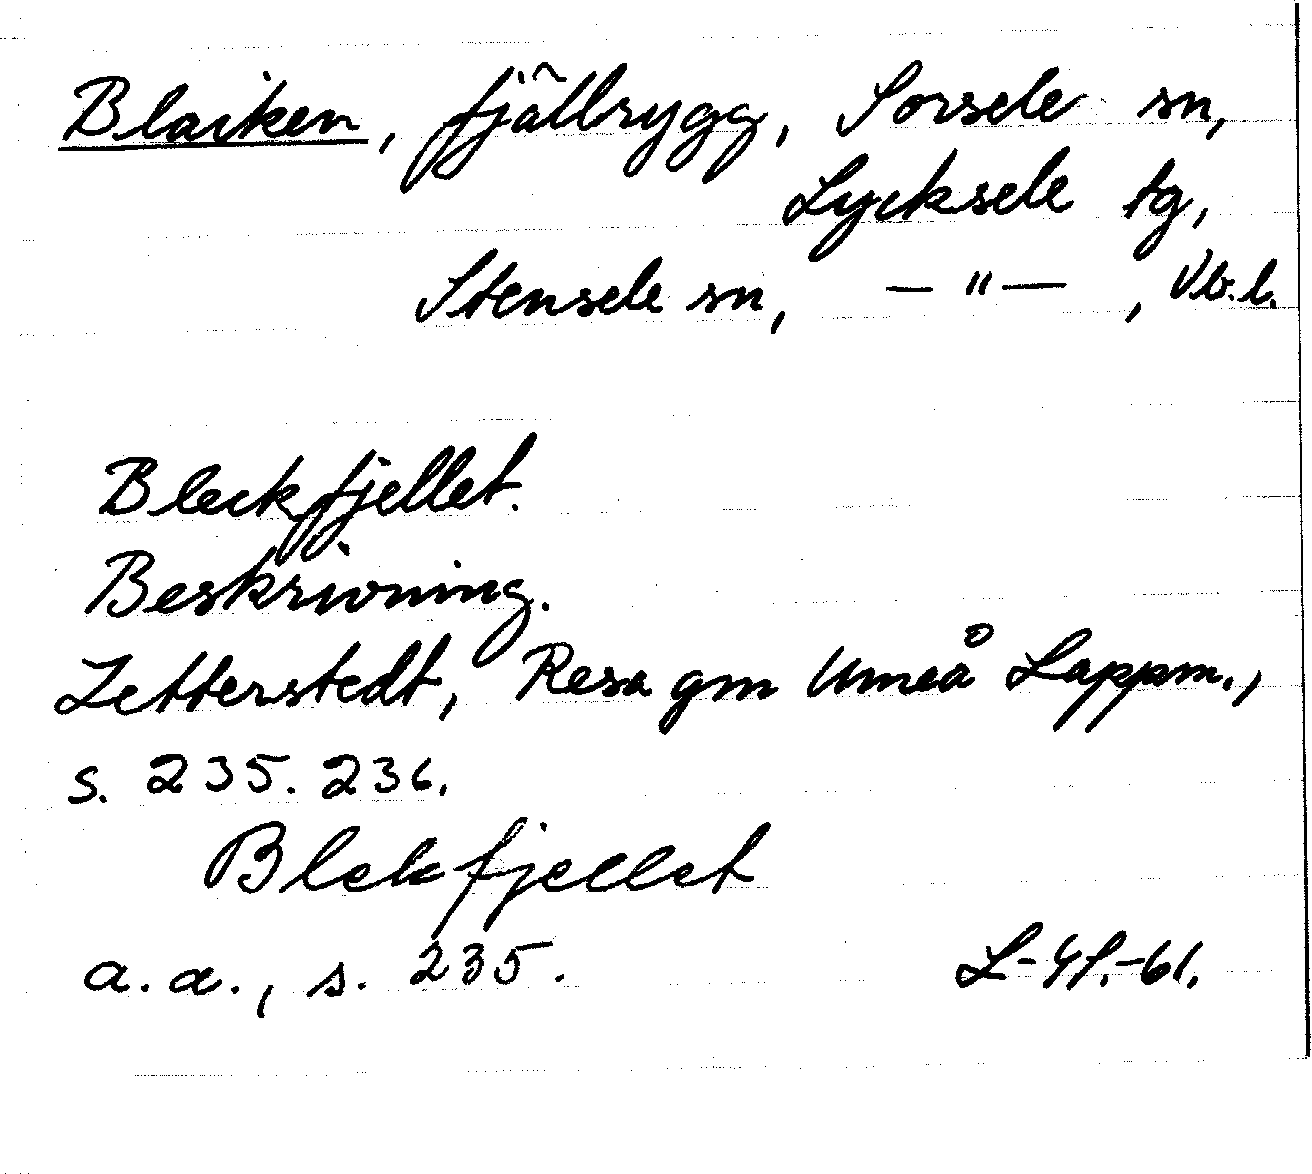 Blaiken, fjällrygg, Sorsele sn,
Lycksele tg,
Stensele sn, — " — , Vb.l.
Bleckfjellet.
Beskrivning.
Zetterstedt, Resa gm Umeå Lappm.,
s. 235. 236.
Blekfjellet
a.a., s. 235.